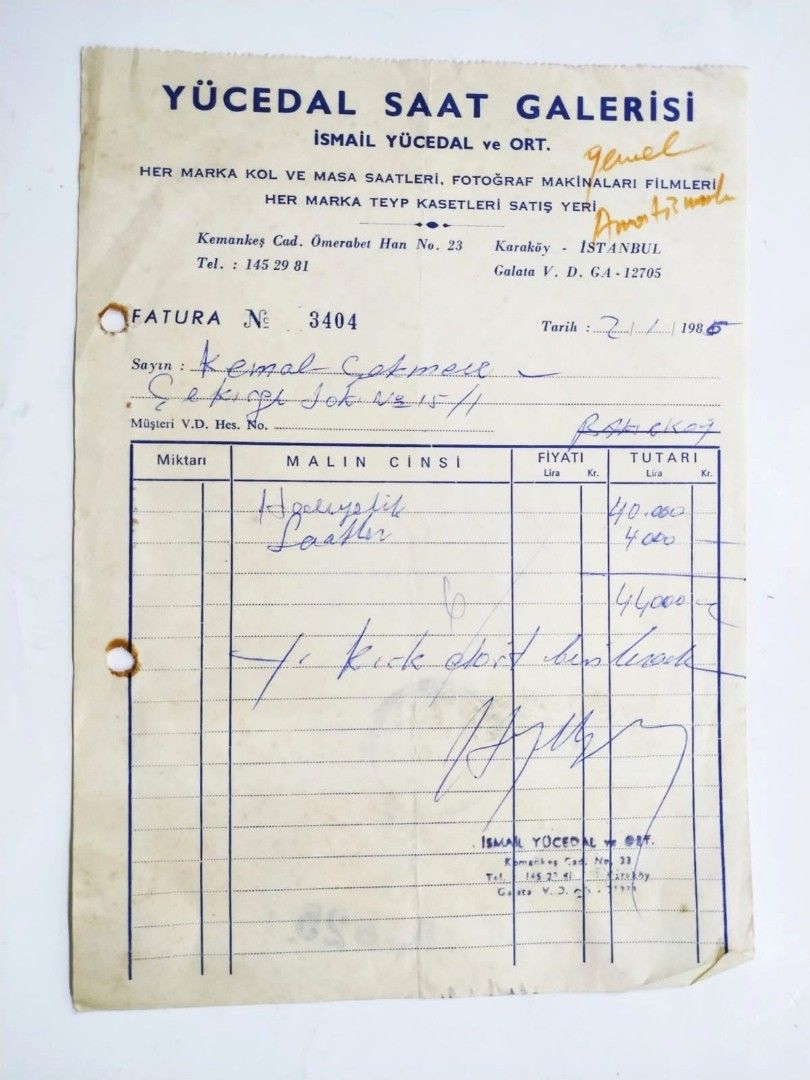 YÜCEDAL SAAT GALERİSİ
İSMAİL YÜCEDAL ve ORT.
genel
HER MARKA KOL VE MASA SAATLERİ, FOTOĞRAF MAKİNALARI FİLMLERİ
HER MARKA TEYP KASETLERİ SATIŞ YERİ
Kemankeş Cad. Ömerabet Han No. 23 Karaköy - İSTANBUL
Tel. : 145 29 81 Galata V. D. GA - 12705
FATURA № 3404 Tarih : 2 / 1 / 1986
Sayın : Kemal
Sok No 15/1
Müşteri V.D. Hes. No. BAKIRKÖY
Miktarı MALIN CİNSİ FİYATI TUTARI
Lira Kr. Lira Kr.
Hediyelik 40.000
Saatler 4000
44000
Y. kırk dört bin liradır
İSMAİL YÜCEDAL ve ORT.
Kemankeş Cad. No. 23
Tel. 145 29 81 Karaköy
Galata V. D.